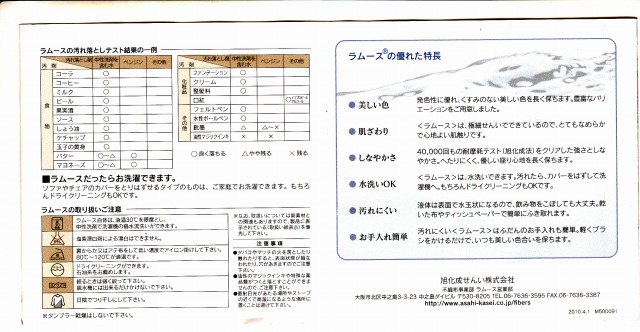 ラムースの汚れ落としテスト結果の一例
汚れ落とし剤 中性洗剤を含む水 ベンジン その他
汚剤
食物
コーラ ○
コーヒー ○
ミルク ○
ビール ○
果実酒 ○
ソース ○
しょう油 ○
ケチャップ ○
玉子の黄身 ○
バター ○~△ ○
マヨネーズ ○~△ ○
汚れ落とし剤 中性洗剤を含む水 ベンジン その他
汚剤
化粧品
ファンデーション ○
クリーム ○
整髪料 ○
口紅 ○
その他
フェルトペン ○
水性ボールペン ○
乾墨 △ △~×
油性マジックインキ × ×
○良く落ちる △やや残る ×残る
■ラムースだったらお洗濯できます。
ソファやチェアのカバーをとりはずせるタイプのものは、ご家庭でお洗濯できます。もちろ
んドライクリーニングもOKです。
ラムースの取り扱いご注意
ラムース自体は、液温30℃を限度とし、
中性洗剤で洗濯機の弱水流洗いができます。
塩素漂白剤による漂白はできません。
裏からか又はアテ布をして低い温度でアイロン掛けして下さい。
80℃~120℃が適温です。
ドライクリーニングができます。
石油系をお薦めします。
絞るときは弱く絞って下さい。
脱水機には出来るだけかけないで下さい。
日陰でつり干しにして下さい。
※タンブラー乾燥はしないで下さい。
※なお、取扱いについては副素材と
の関連もありますので、製品に表
示されている(取扱い絵表示)を優
先して下さい。
注意事項
●タバコやマッチの火を落としたり
触れたりすると、表面状態が損な
われたり、穴があきますのでご注意
下さい。
●油性のマジックインキや特殊な薬
品類がつくと落とすことができませ
んので、ご注意下さい。
●直射日光があたる場所やストーブ
の近くで高温になるような場所に
置くことは避けて下さい。
ラムース®の優れた特長
●美しい色
発色性に優れ、くすみのない美しい色を長く保ちます。豊富なバリ
エーションをご用意しました。
●肌ざわり
<ラムース>は、極細せんいでできているので、とてもなめらか
で心地よい肌触りです。
●しなやかさ
40,000回もの耐摩耗テスト(旭化成法)をクリアした強さとしな
やかさ。へたりにくく、優しい座り心地を長く保ちます。
●水洗いOK
<ラムース>は、水洗いできます。汚れたら、カバーをはずして洗濯
機へ。もちろんドライクリーニングもOKです。
●汚れにくい
液体は表面で水玉状になるので、飲み物をこぼしても大丈夫。乾
いた布やティッシュペーパーで簡単にふき取れます。
●お手入れ簡単
汚れにくい<ラムース>はふだんのお手入れも簡単。軽くブラ
シをかけるだけで、いつも美しい色合いを保ちます。
旭化成せんい株式会社
不織布事業部 ラムース営業部
大阪市北区中之島3-3-23 中之島ダイビル 〒530-8205 TEL.06-7636-3595 FAX.06-7636-3387
http://www.asahi-kasei.co.jp/fibers
2010.4.1 M500091